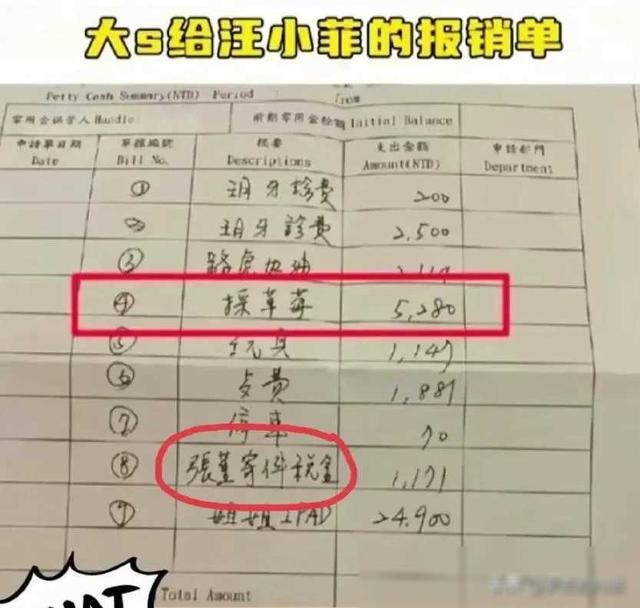 大s给汪小菲的报销单
Petty Cash Summary(NTD) Period From
零用金保管人 Handle: 前期零用金餘額 Initial Balance
申請單日期 單據編號 摘要 支出金額 申請部門
Date Bill No. Descriptions Amount(NTD) Department
① 玥牙診費 200
② 玥牙診費 2,500
③ 路虎加油
④ 採草莓 5,280
⑤ 玩具 1,147
⑥ 費 1,881
⑦ 停車 70
⑧ 張董寄件稅金 1,171
⑨ 姐姐IPAD 24,900
Total Amount